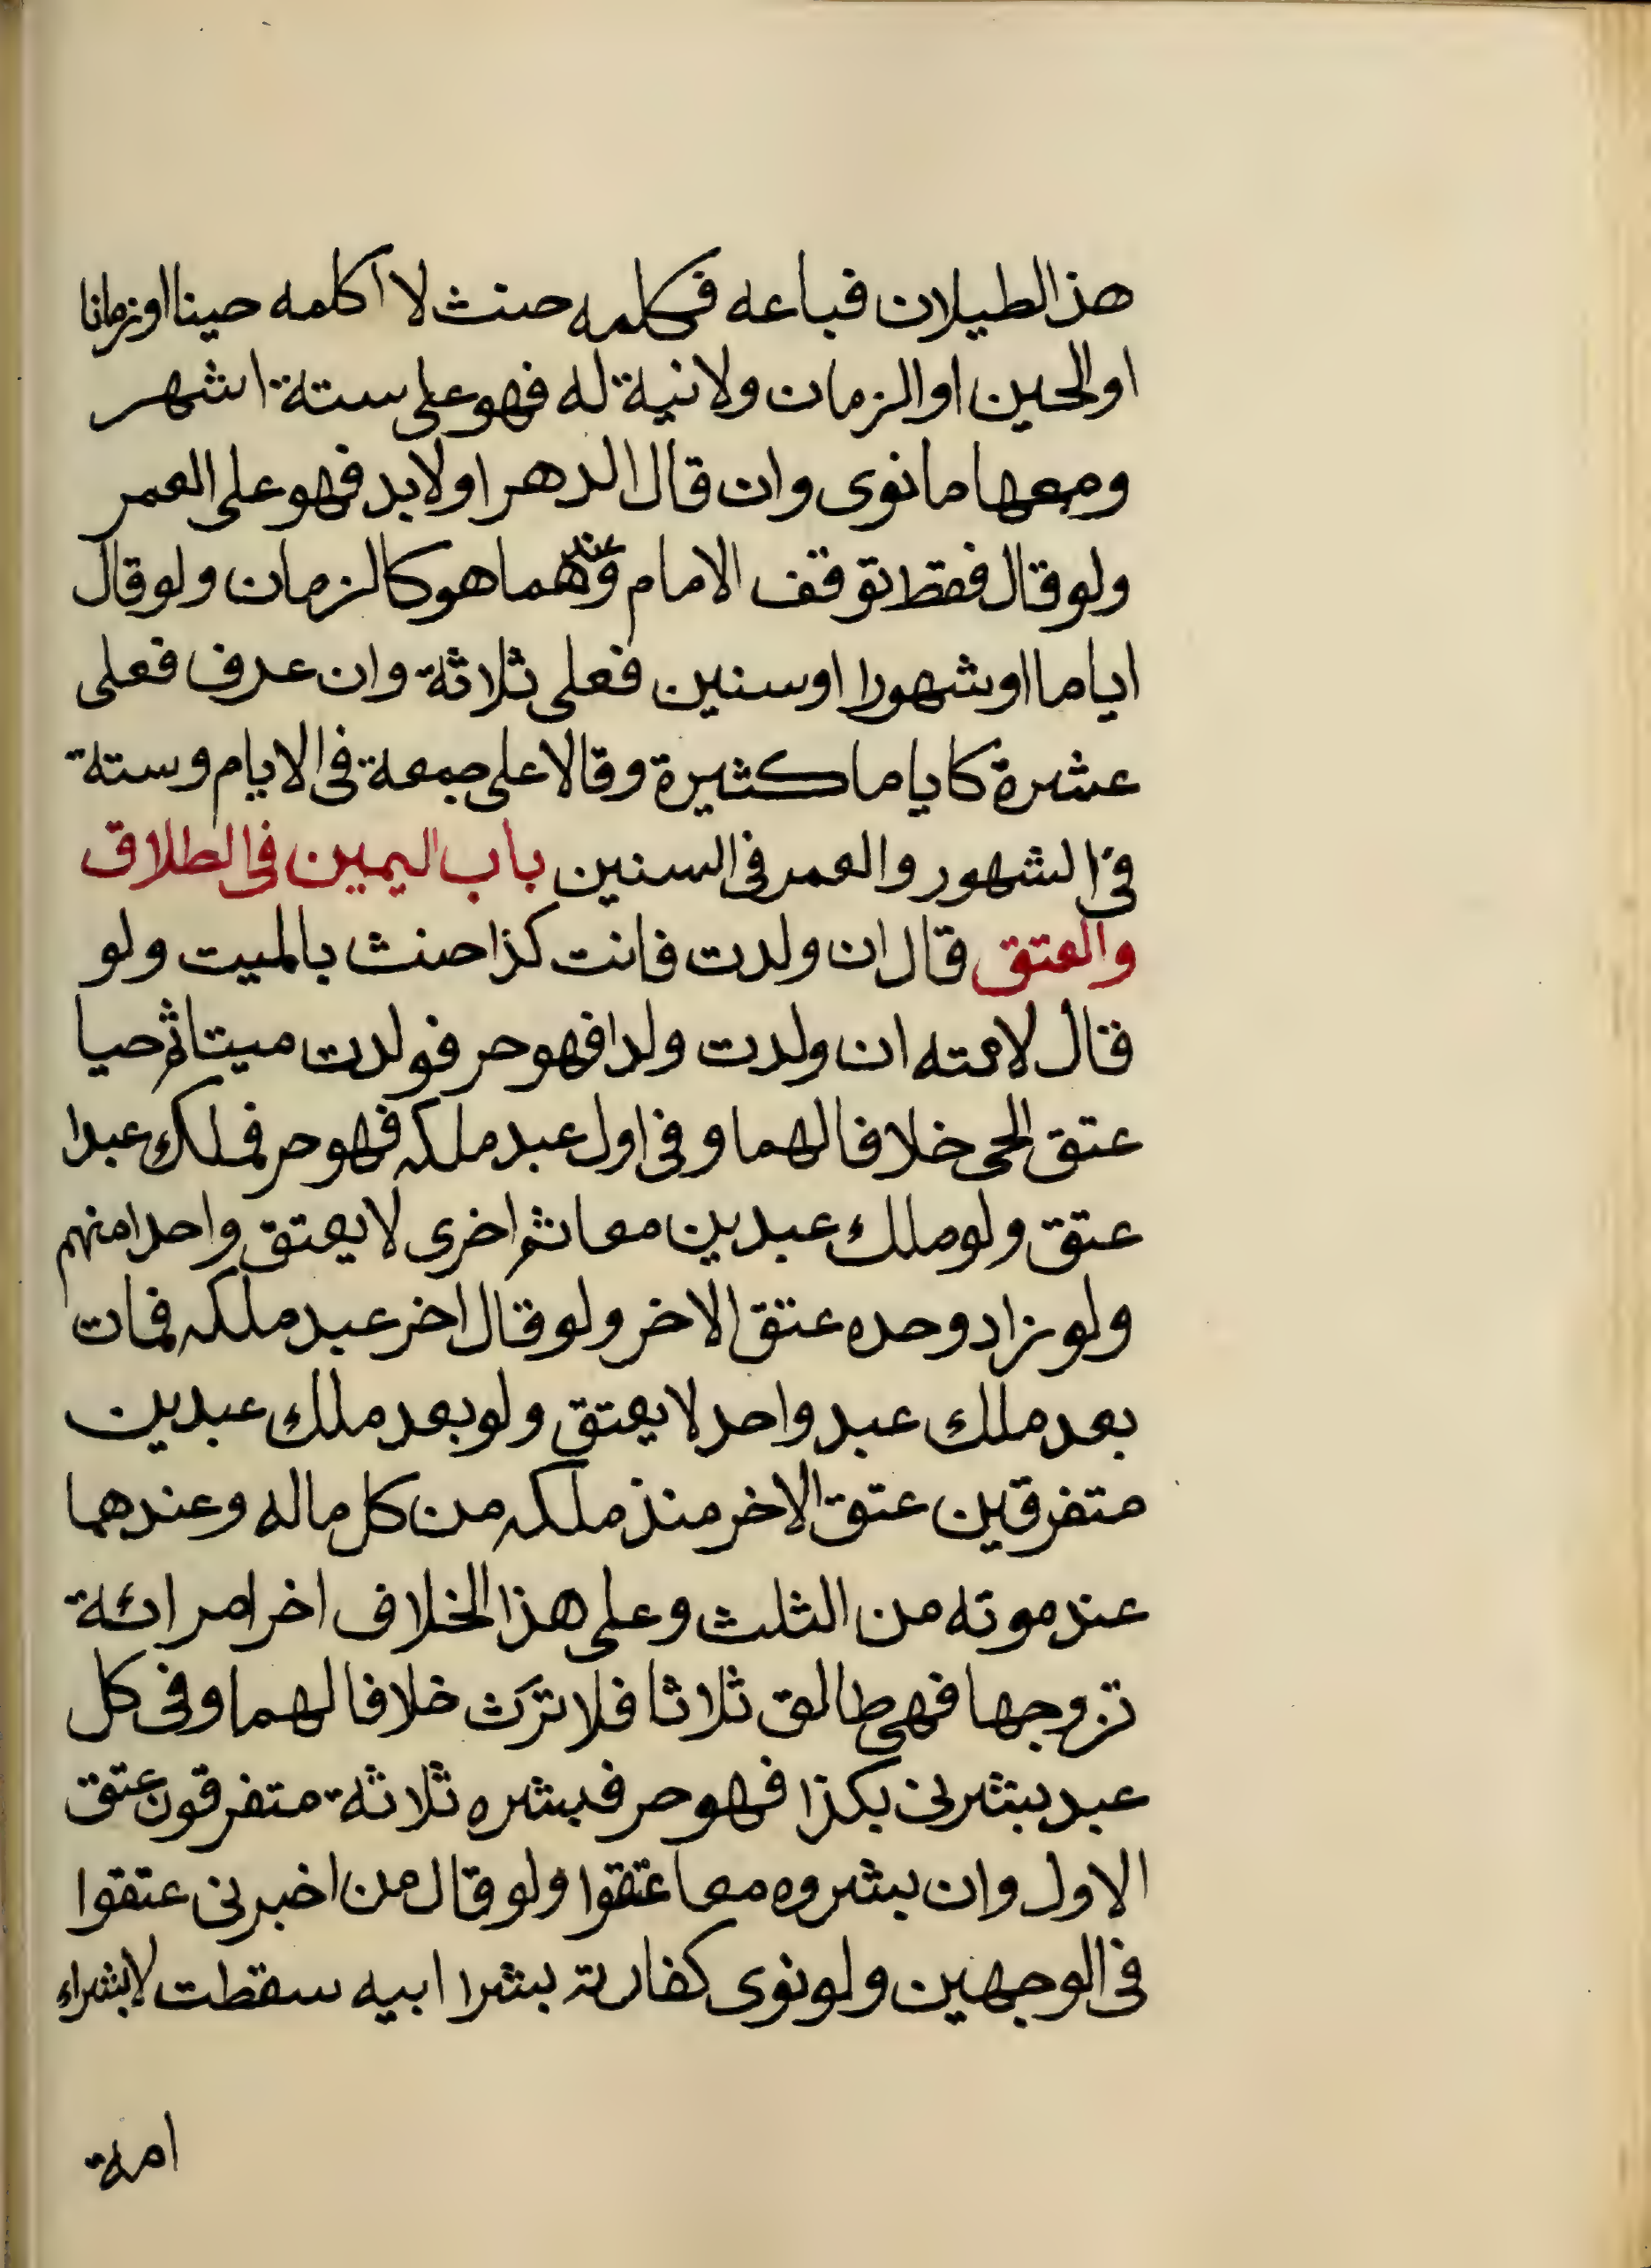 هذالطيلان فباعه فكلمه حنث لا اكلمه حينا اوزمانا
اوالحين اوالزمان ولانية له فهو على ستة اشهر
ومعها مانوى وان قال الدهر اولابد فهو على العمر
ولوقال فقط توقف الامام وعندهما هو كالزمان ولوقال
اياما اوشهورا اوسنين فعلى ثلاثة وان عرف فعلى
عشرة كاياما كثيرة وقالا على جمعة فى الايام وستة
فى الشهور والعمر فى السنين باب اليمين فى الطلاق
والعتق قال ان ولدت فانت كذا حنث بالميت ولو
قال لامته ان ولدت ولدا فهو حر فولدت ميتا ثم حيا
عتق الحى خلافا لهما وفى اول عبد ملكه فهو حر فملك عبدا
عتق ولوملك عبدين معا ثم اخرى لايعتق واحدا منهم
ولوزاد وحده عتق الاخر ولوقال اخر عبد ملكه فمات
بعد ملك عبد واحد لايعتق ولوبعد ملك عبدين
متفرقين عتق الاخر منذ ملكه من كل ماله وعندهما
عند موته من الثلث وعلى هذا الخلاف اخر امرائة
تزوجها فهى طالق ثلاثا فلا ترث خلافا لهما وفى كل
عبد بشرنى بكذا فهو حر فبشره ثلاثة متفرقون عتق
الاول وان بشروه معا عتقوا ولوقال من اخبرنى عتقوا
فى الوجهين ولونوى كفارته بشرا ابيه سقطت لابشراء
امة